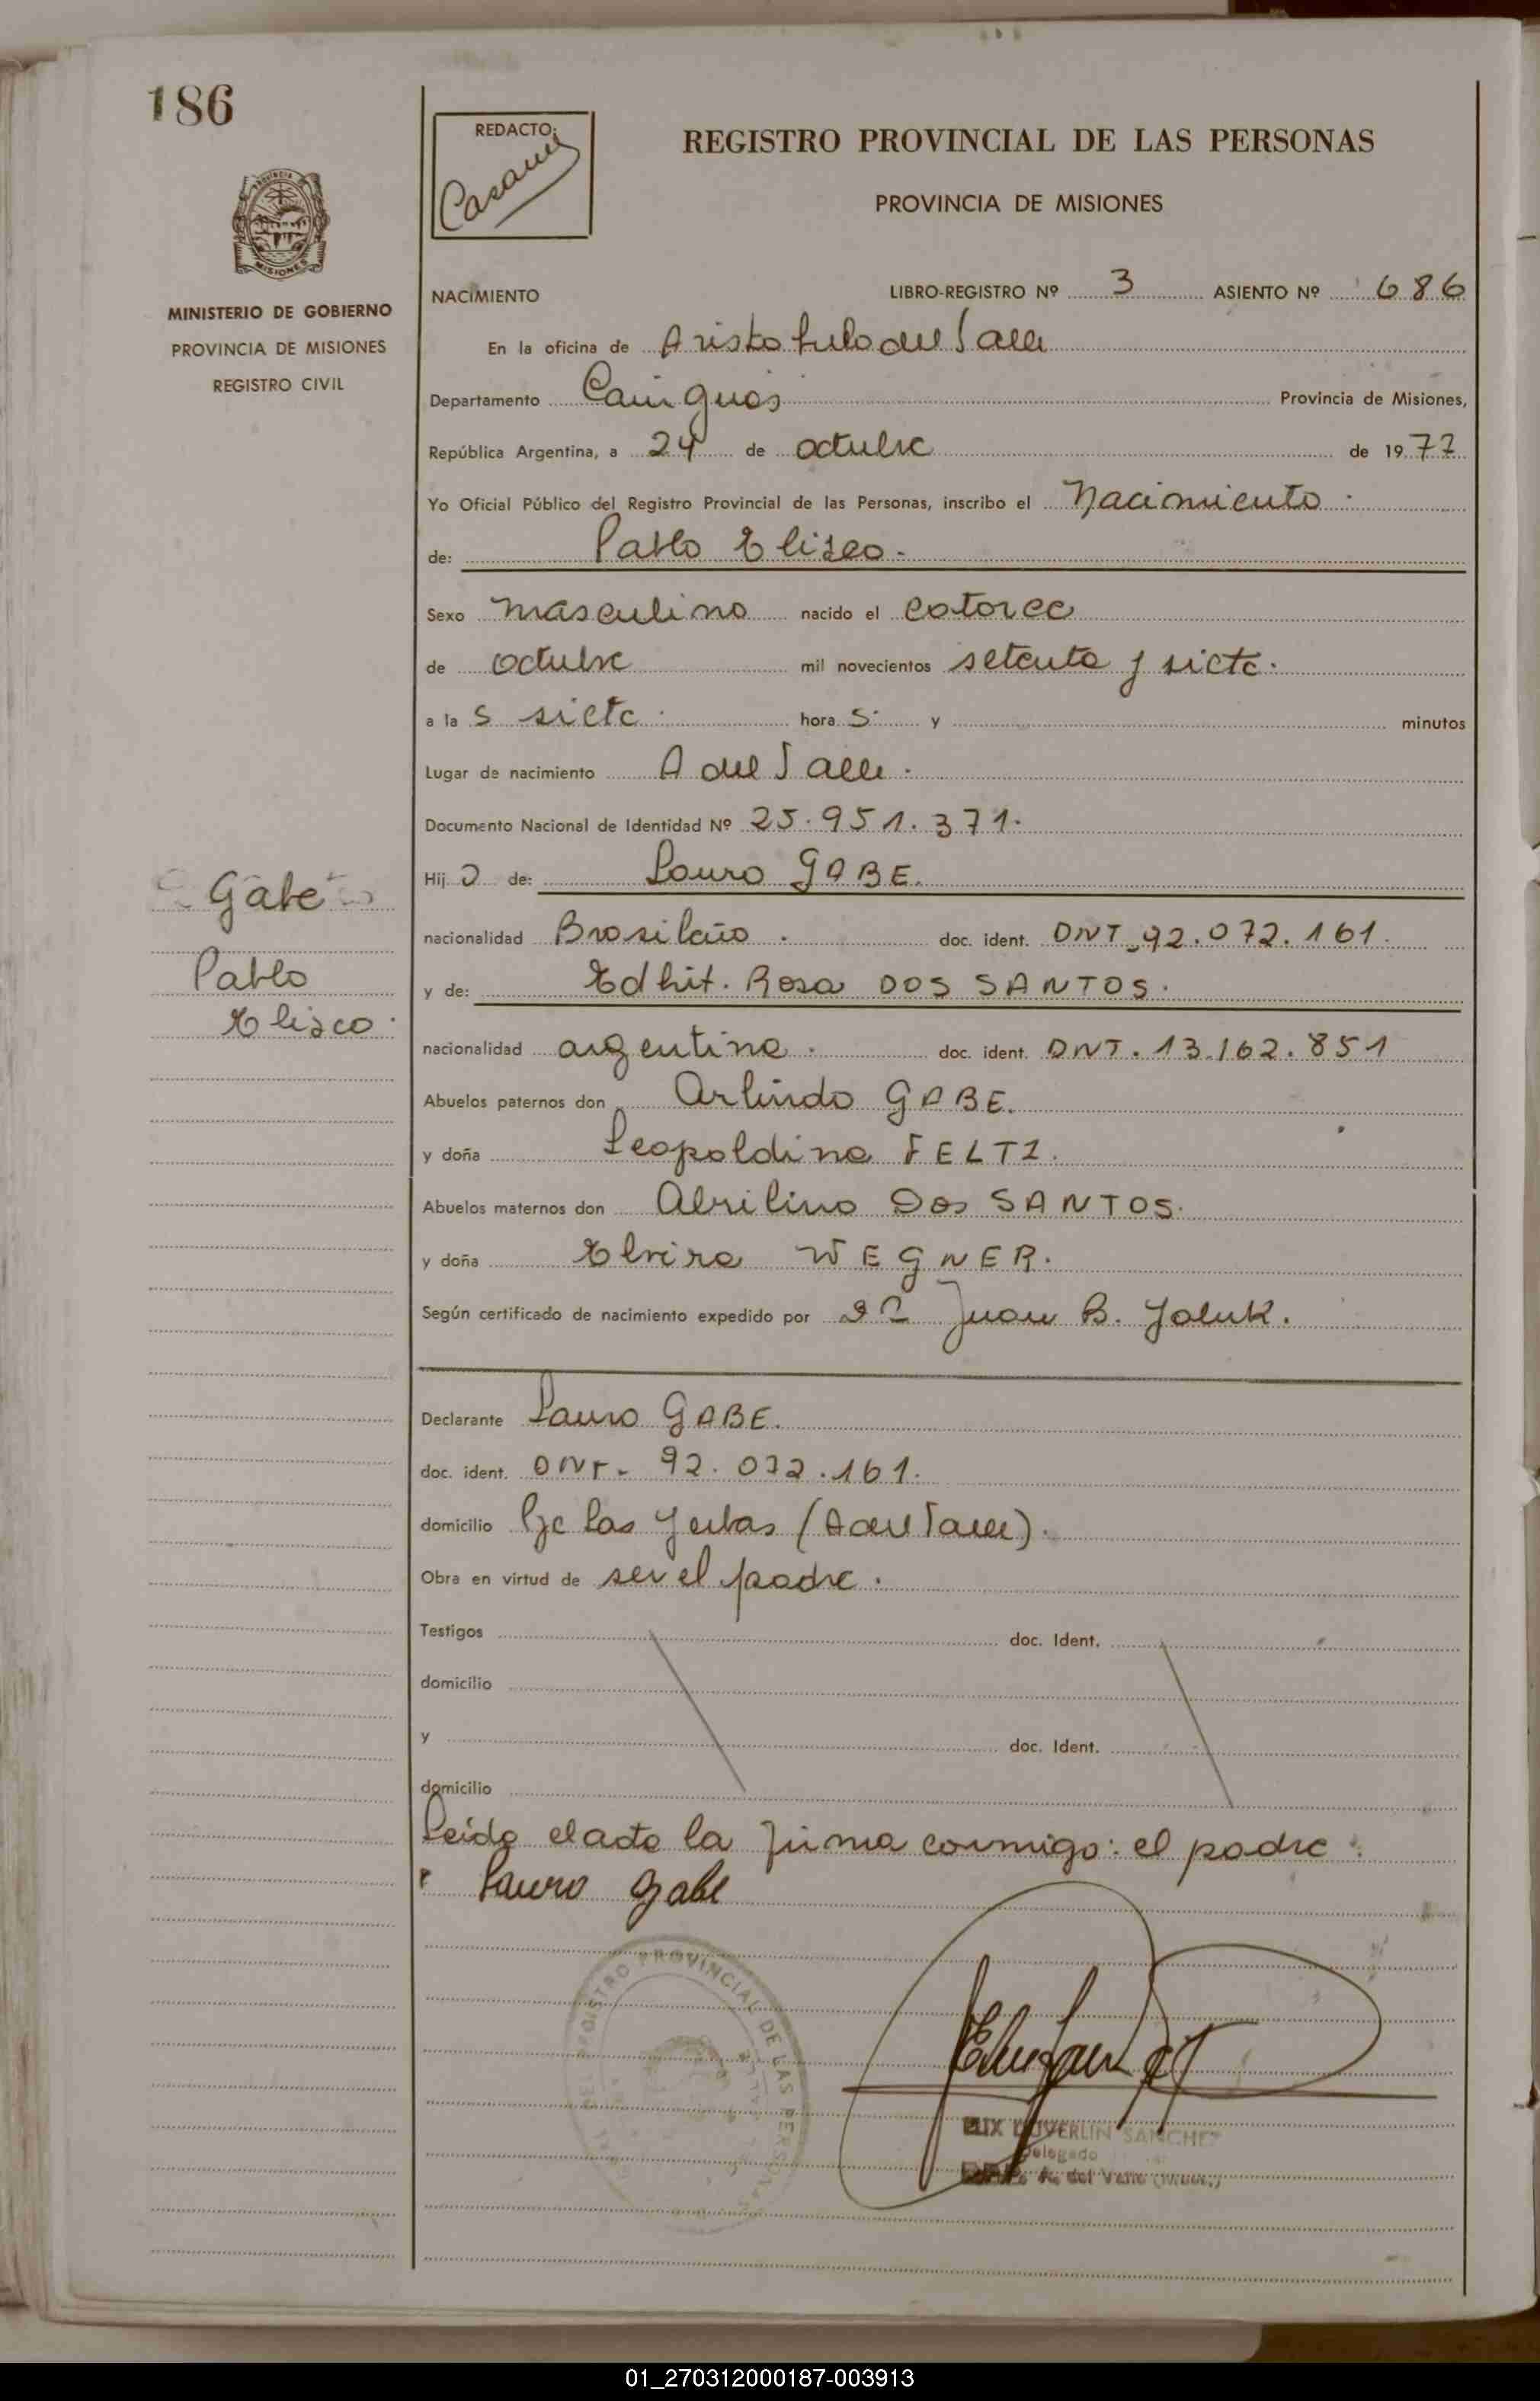 186
REDACTO:
REGISTRO PROVINCIAL DE LAS PERSONAS
PROVINCIA DE MISIONES
PROVINCIA
MISIONES
MINISTERIO DE GOBIERNO
PROVINCIA DE MISIONES
REGISTRO CIVIL
NACIMIENTO LIBRO-REGISTRO Nº 3 ASIENTO Nº 686
En la oficina de Aristobulo del Valle
Departamento Cainguas Provincia de Misiones,
República Argentina, a 24 de octubre de 1977
Yo Oficial Público del Registro Provincial de las Personas, inscribo el Nacimiento.
de: Pablo Eliseo.
Sexo masculino nacido el catorce
de octubre mil novecientos setenta y siete.
a la s siete. hora s. y minutos
Lugar de nacimiento A del Valle.
Documento Nacional de Identidad Nº 25.951.371.
Hij o de: Lauro GABE.
nacionalidad Brasileño. doc. ident. DNI_92.072.161.
y de: Edhit. Rosa DOS SANTOS.
nacionalidad argentina. doc. ident. DNI. 13.162.851
Abuelos paternos don Arlindo GABE.
y doña Leopoldina FELTZ.
Abuelos maternos don Abrilino Dos SANTOS.
y doña Elvira WEGNER.
Según certificado de nacimiento expedido por Juan B.
Gabe
Pablo
Eliseo.
Declarante Lauro GABE.
doc. ident. DNI- 92.072.161.
domicilio las Yerbas (A del Valle).
Obra en virtud de ser el padre.
Testigos doc. Ident.
domicilio
y doc. Ident.
domicilio
Leida el acta la firma conmigo: el padre:
Lauro Gabe
REGISTRO PROVINCIAL DE LAS PERSONAS
DUVERLIN SANCHEZ
Delegado
A. del Valle
01_270312000187-003913